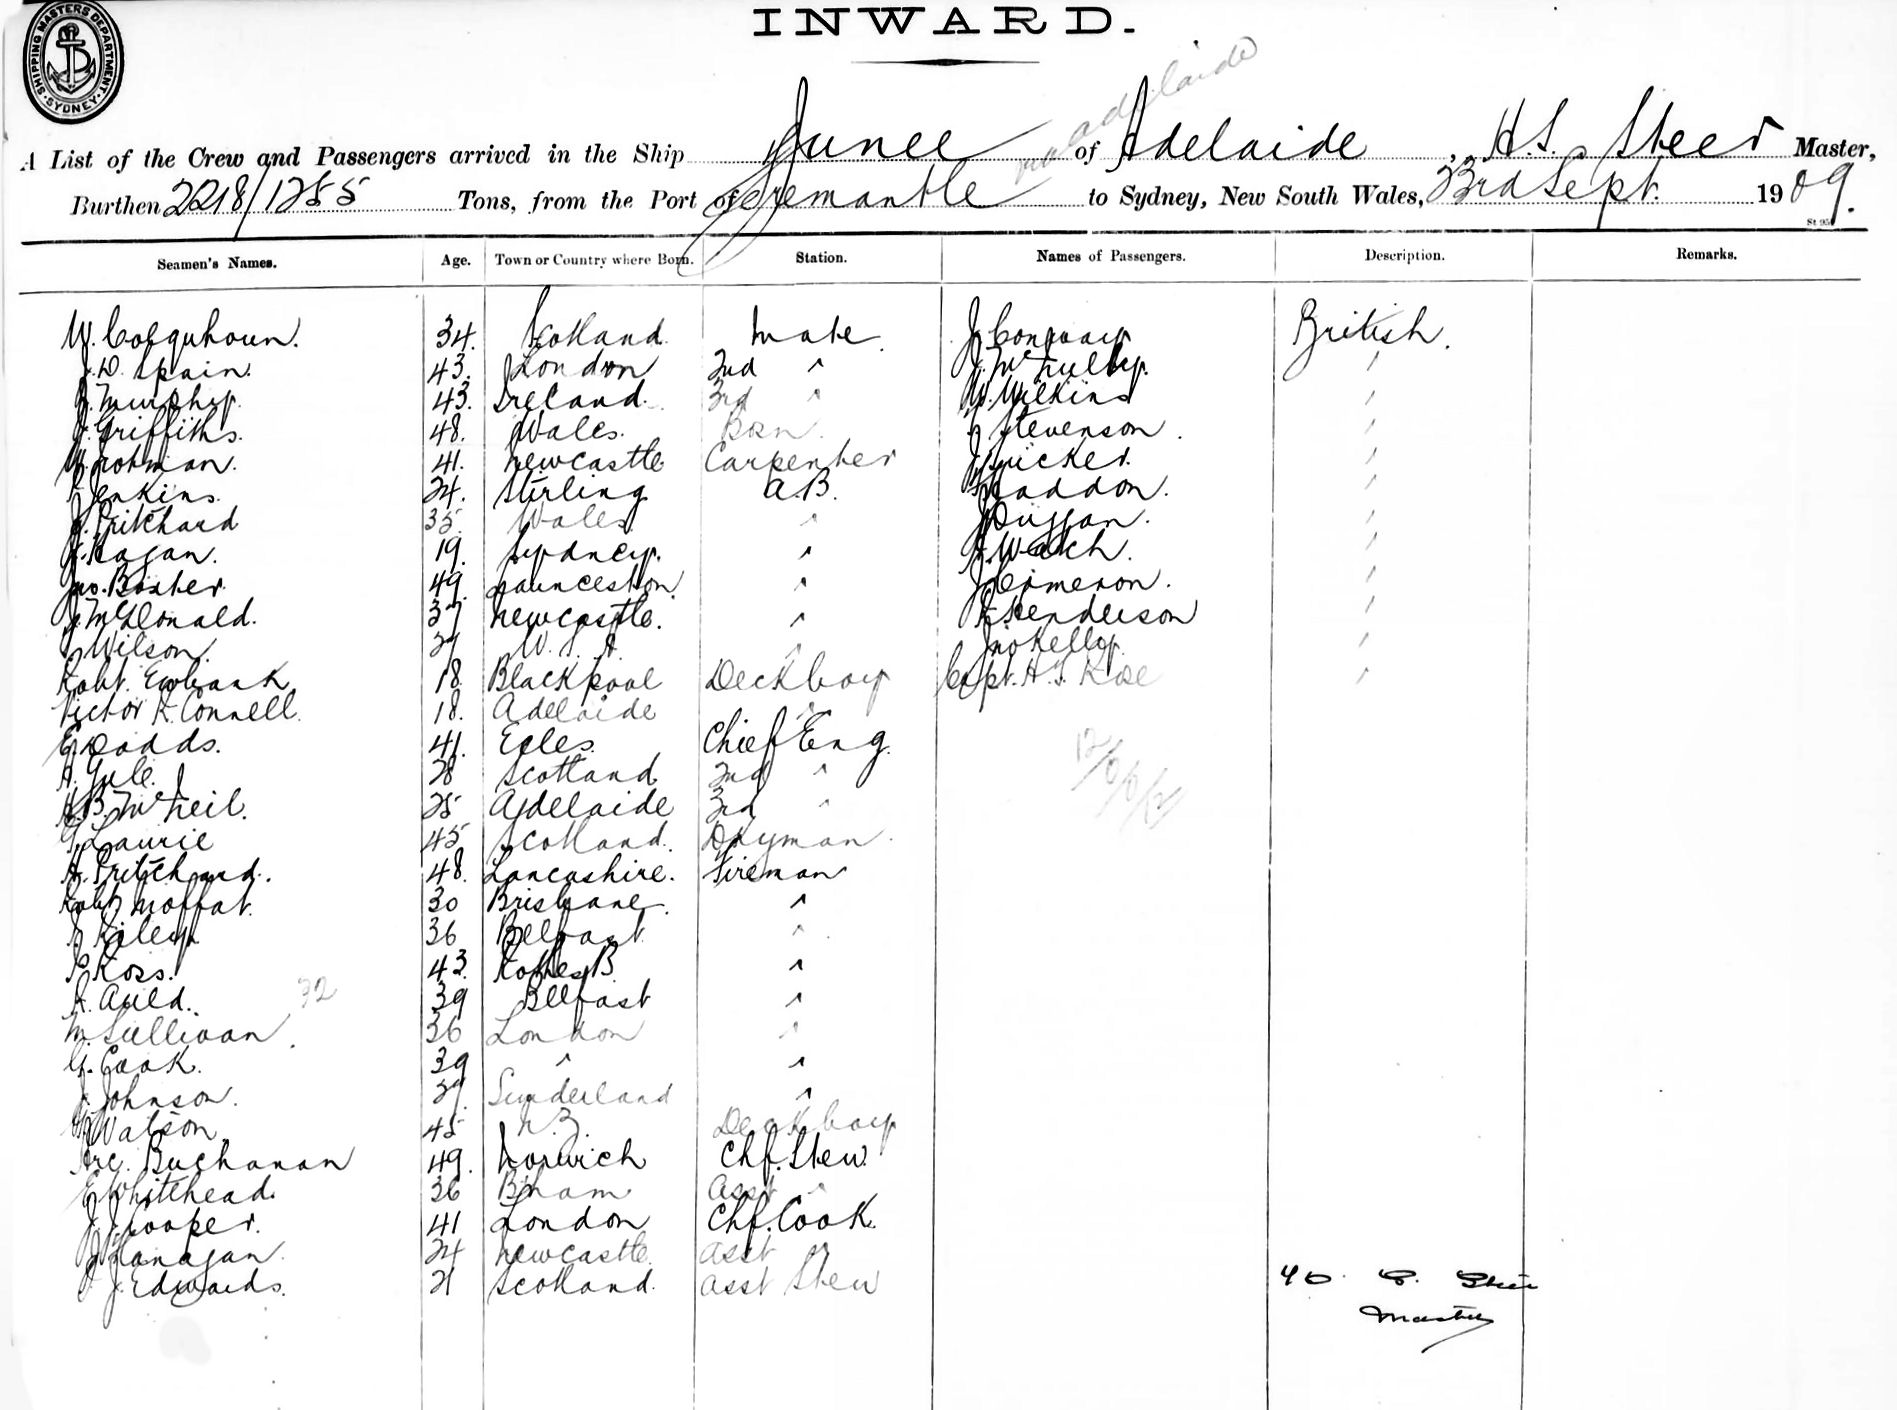 SHIPPING MASTERS DEPARTMENT · SYDNEY ·
INWARD.
via adelaide
A List of the Crew and Passengers arrived in the Ship Junee of Adelaide, H.S. Steer Master,
Burthen 2218/1255 Tons, from the Port of Fremantle to Sydney, New South Wales, 23rd Sept. 1909.
St 95
Seamen's Names. Age. Town or Country where Born. Station. Names of Passengers. Description. Remarks.
W. Colquhoun. 34. Scotland mate. J British.
J.D. Spain. 43. London 2nd "
J. Murphy. 43. Ireland. 3rd " W. Wilkins "
J. Griffiths. 48. Wales. Bosn. J Stevenson. "
41. Newcastle Carpenter "
Jenkins. 24. Stirling A.B. Haddon. "
J. Pritchard 35. Wales. " J Duggan. "
J. Hagan. 19. Sydney. " "
Jno. Baxter. 49. Launceston. " J Cameron. "
J. McDonald. 37 Newcastle. " Henderson "
Wilson. " Jno Kelly. "
Robt. Ewbank 18. Blackpool Deckboy Capt. H.S. "
Victor R. Connell. 18. Adelaide "
E. Dodds. 41. Ecles. Chief Eng.
A. Yule. 28 Scotland 2nd "
H.B. McNeil. 25 Adelaide 3rd "
G. Laurie 45 Scotland. Dayman.
A. Pritchard. 48. Lancashire. Fireman
Robt Moffat. 30 Brisbane. "
J Kiley 36 Belfast. "
P Ross. 43. "
A. Auld. 32 39 Belfast "
M. Sullivan. 36 London "
G. Cook. 39 " "
J. Johnson. Sunderland "
Watson. 45 N.Z. Deckboy
Buchanan 49. Norwich Chf. Stew.
E. Whitehead. 36 B'ham Asst "
J. Cooper. 41 London Chf. Cook.
J Flanagan. 24 Newcastle. Asst "
J. Edwards. 21 Scotland. Asst Stew
Master